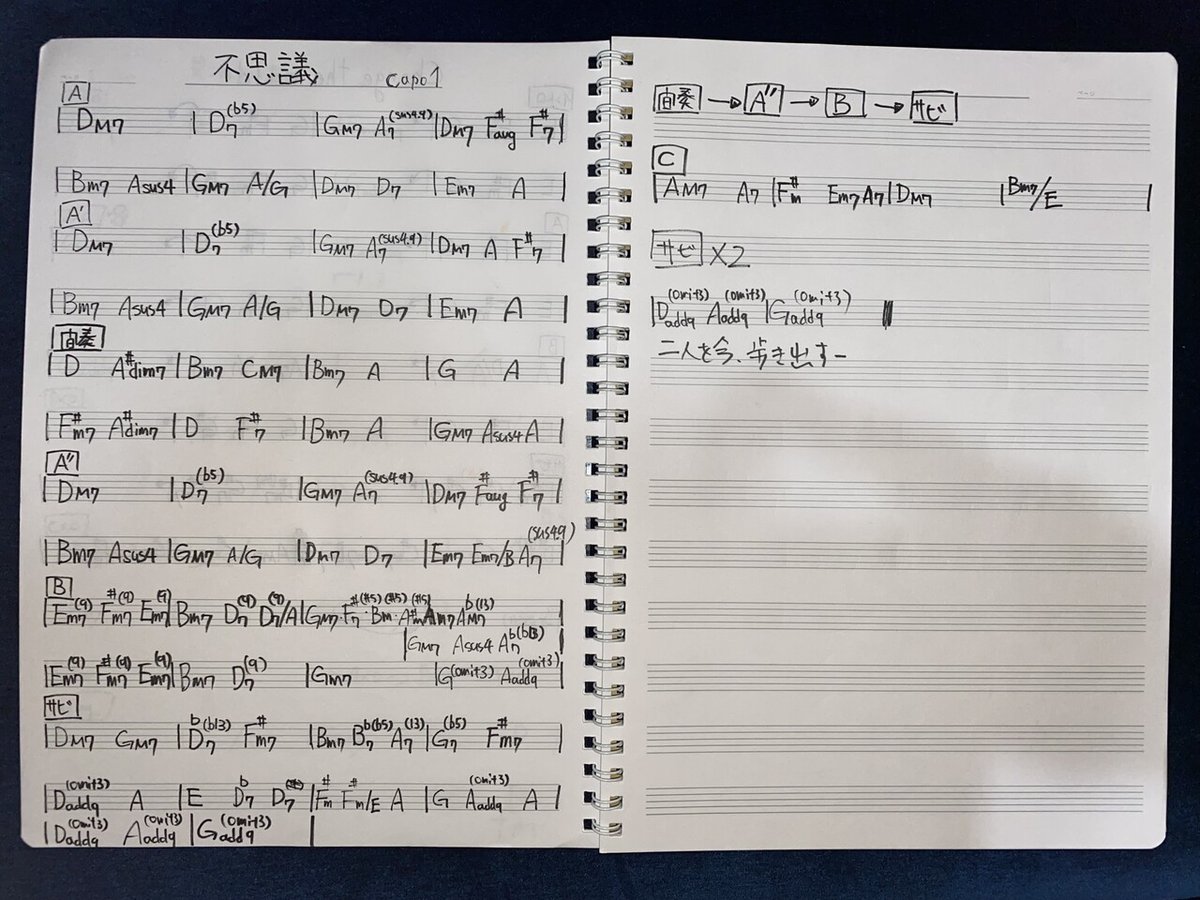 不思議 capo1
A
| DM7 | D7(b5) | GM7 A7(sus4.9) | DM7 F#aug F#7 |
| Bm7 Asus4 | GM7 A/G | DM7 D7 | Em7 A |
A'
| DM7 | D7(b5) | GM7 A7(sus4.9) | DM7 A F#7 |
| Bm7 Asus4 | GM7 A/G | DM7 D7 | Em7 A |
間奏
| D A#dim7 | Bm7 CM7 | Bm7 A | G A |
| F#m7 A#dim7 | D F#7 | Bm7 A | GM7 Asus4 A |
A"
| DM7 | D7(b5) | GM7 A7(sus4.9) | DM7 F#aug F#7 |
| Bm7 Asus4 | GM7 A/G | DM7 D7 | Em7 Em7/B A7(sus4.9) |
B
| Em7(9) F#m7(9) Em7(9) | Bm7 D7(9) D7(9)/A | GM7
| GM7 Asus4
| Em7(9) F#m7(9) Em7(9) | Bm7 D7(9) | GM7 | G(omit3) Aadd9(omit3) |
サビ
| DM7 GM7 | Db7(b13) F#m7 | Bm7 Bb7(b5) A7(13) | G7(b5) F#m7 |
| Dadd9(omit3) A | E Db7 D7 | F#m F#m/E A | G Aadd9(omit3) A |
| Dadd9(omit3) Aadd9(omit3) | Gadd9(omit3) |
間奏 → A" → B → サビ
C
| AM7 A7 | F#m Em7 A7 | DM7 | Bm7/E |
サビ ×2
| Dadd9(omit3) Aadd9(omit3) | Gadd9(omit3)
二人を今、歩き出すー